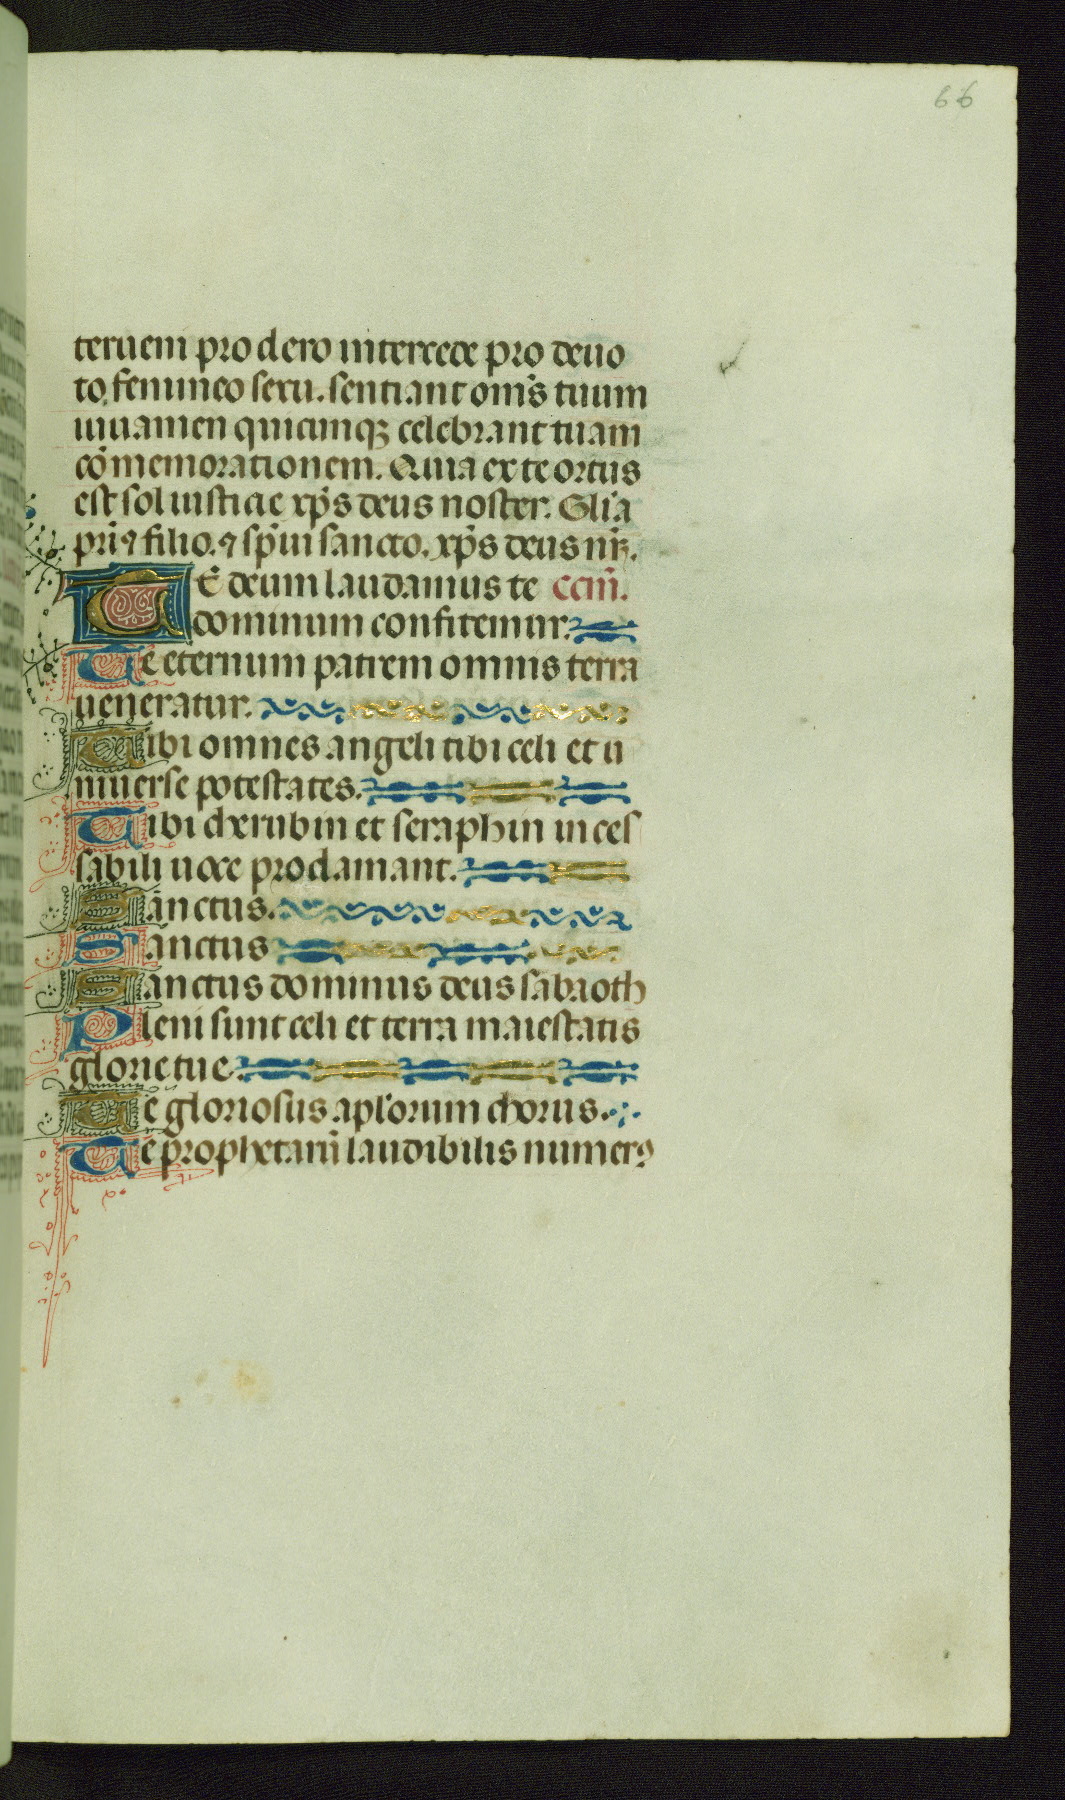 66
teruem pro clero intercede pro deuo
to femineo sexu. sentiant om̄s tuum
iuuamen quicumqꝫ celebrant tuam
cōmemorationem. Quia ex te ortus
est sol iusticie xp̄s deus noster. Gl̄ia
pr̄i ⁊ filio. ⁊ sp̄ui sancto. xp̄s deus nr̄.
TE deum laudamus te
dominum confitemur.
Te eternum patrem omnis terra
ueneratur.
Tibi omnes angeli tibi celi et u
niuerse potestates.
Tibi cherubin et seraphin inces
sabili uoce proclamant.
Sanctus.
Sanctus
Sanctus dominus deus sabaoth
Pleni sunt celi et terra maiestatis
glorie tue.
Te gloriosus apl̄orum chorus.
Te prophetarū laudibilis numerꝰ